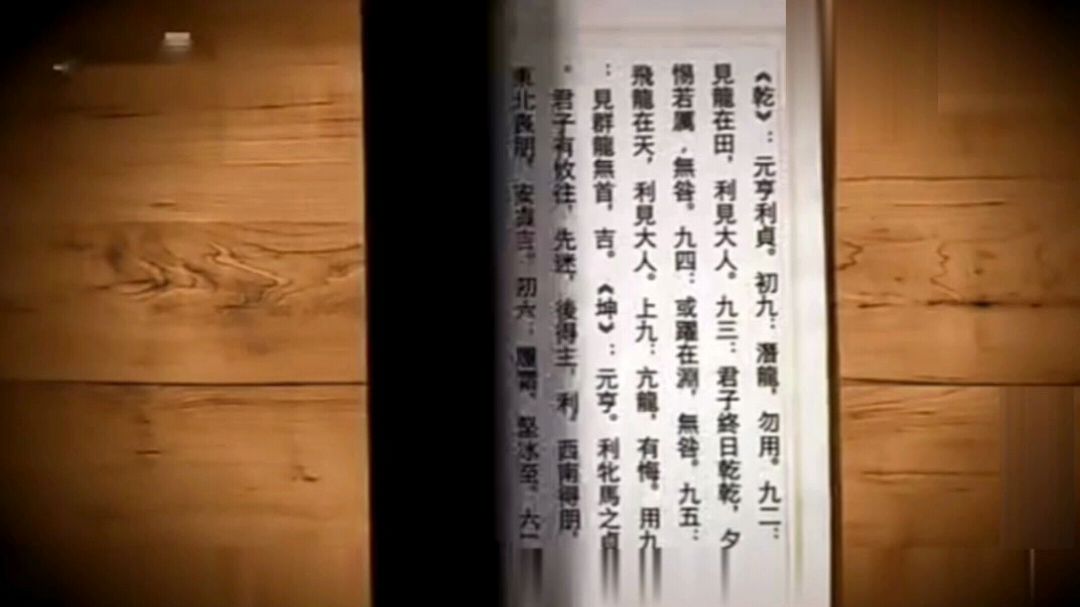 《乾》：元亨利貞。初九：潛龍，勿用。九二：
見龍在田，利見大人。九三：君子終日乾乾，夕
惕若厲，無咎。九四：或躍在淵，無咎。九五：
飛龍在天，利見大人。上九：亢龍，有悔。用九
：見群龍無首，吉。《坤》：元亨。利牝馬之貞
。君子有攸往，先迷，後得主，利，西南得朋，
東北喪朋，安貞吉。初六：履霜，堅冰至。六二